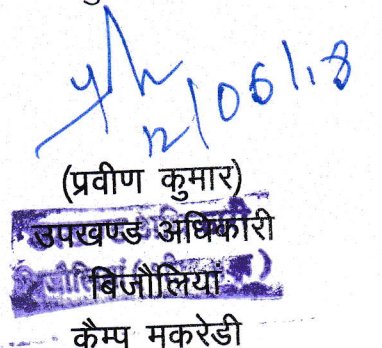 12/06/18
(प्रवीण कुमार)
उपखण्ड अधिकारी
बिजौलियां
कैम्प मकरेडी